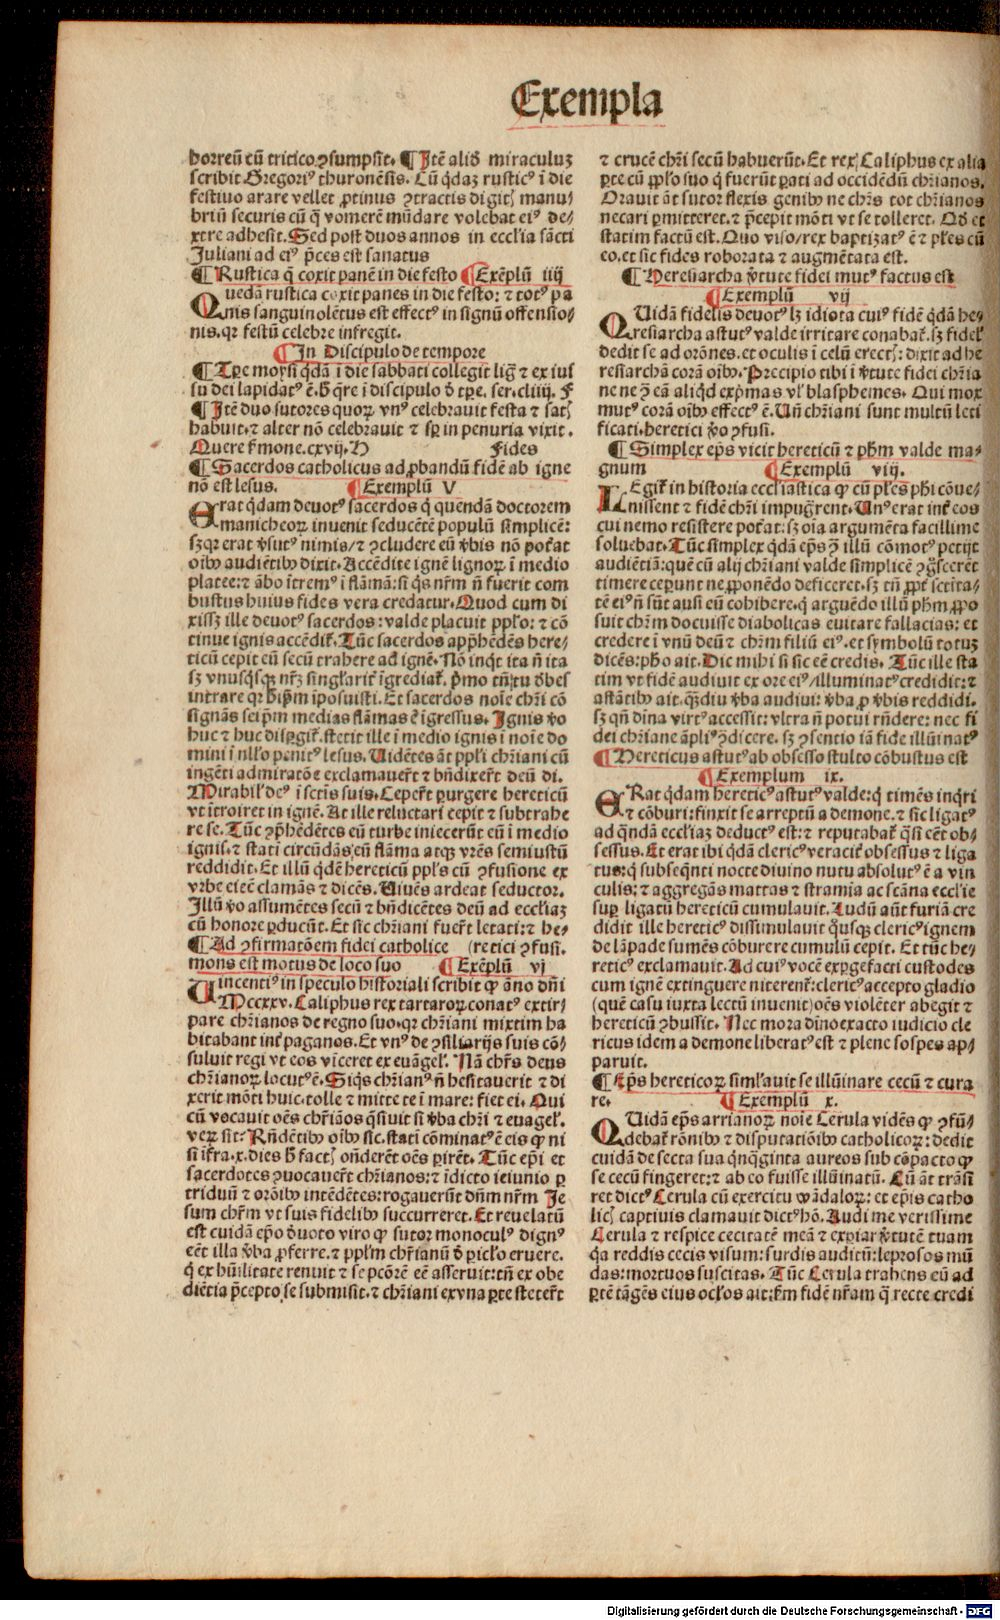 Exempla
horreū cū tritico ꝯsumpsit. ¶ Itē aliđ miraculuꝫ
scribit Gregoriꝰ thuronēsis. Cū qͥdaꝫ rusticꝰ ī die
festiuo arare vellet ꝓtinus ꝯtractis digitꝭ manu/
briū securis cū q̄ vomerē mūdare volebat eiꝰ de/
xtre adhesit. Sed post duos annos in eccl'ia sācti
Juliani ad eiꝰ p̄ces est sanatus
¶ Rustica q̄ coxit panē in die festo ¶ Exēplū iiij
Quedā rustica coxit panes in die festo: ⁊ totꝰ pa
nis sanguinolētus est effectꝰ in signū offensio/
nis. qꝛ festū celebre infregit.
¶ In Discipulo de tempore
¶ Tꝑe moysi qͥdā ī die sabbati collegit lignꝭ ⁊ ex ius
su dei lapidatꝰ ē. h̄ q̄re ī discipulo đ tꝑe. ser. cliiij. F
¶ Itē duo sutores quoꝝ vnꝰ celebrauit festa ⁊ satꝭ
habuit. ⁊ alter nō celebrauit ⁊ sꝑ in penuria vixit.
Quere s̄mone. cxvij. H Fides
¶ Sacerdos catholicus ad ꝓbandū fidē ab igne
nō est lesus. ¶ Exemplū V
Erat qͥdam deuotꝰ sacerdos q̄ quendā doctorem
manicheoꝝ inuenit seducētē populū simplicē:
sꝫ qꝛ erat v̄sutꝰ nimis/ ⁊ ꝯcludere eū v̄bis nō pot'at
oībꝰ audiētibꝰ dixit. Accēdite ignē lignoꝝ ī medio
platee: ⁊ ābo ītremꝰ ī flāmā: si qͥs nr̄m n̄ fuerit com
bustus huius fides vera credatur. Quod cum di
xissꝫ ille deuotꝰ sacerdos: valde placuit pplo: ⁊ cō
tinue ignis accēdit'. Tūc sacerdos app̄hēdēs here/
ticū cepit eū secū trahere ad ignē. Nō inqͥt ita n̄ ita
sꝫ vnusqͥsqꝫ nr̄ꝫ singl'arit' īgrediat'. p̄mo tn̄ tu đbes
intrare qꝛ h̄ ip̄m īposuisti. Et sacerdos noīe chr̄i cō
signās seip̄m medias flāmas ē īgressus. Ignis v̄o
huc ⁊ huc disp̄git'. stetit ille ī medio ignis ī noīe do
mini ī nl'lo penitꝰ lesus. Uidētes āt ppl'i chr̄iani cū
ingēti admiratōe exclamauer̄t ⁊ bn̄dixer̄t deū di.
Mirabil' deꝰ ī sctīs suis. Ceper̄t ꝑurgere hereticū
vt ītroiret in ignē. At ille reluctari cepit ⁊ subtrahe
re se. Tūc ꝯp̄hēdētes eū turbe iniecerūt eū ī medio
ignis. ⁊ stati circūdās eū flāma atqꝫ vrēs semiustū
reddidit. Et illū qͥdē hereticū ppl's cū ꝯfusione ex
vrbe eiecit clamās ⁊ dicēs. Uiuēs ardeat seductor.
Illū v̄o assumētes secū ⁊ bn̄dicētes deū ad eccl'iaꝫ
cū honore ꝑducūt. Et sic chr̄iani fuer̄t letati: ⁊ he/
¶ Ad ꝯfirmatōem fidei catholice (retici ꝯfusi.
mons est motus de loco suo ¶ Exēplū vj
Uincentiꝰ in speculo historiali scribit ꝙ āno dn̄i
Mccxxv. Caliphus rex tartaroꝝ conatꝰ extir/
pare chr̄ianos de regno suo. qꝛ chr̄iani mixtim ha
bitabant int' paganos. Et vnꝰ de ꝯsiliarijs suis cō/
suluit regi vt eos vīceret ex euāgel'. Nā chr̄s deus
chr̄ianoꝝ locutꝰ ē. Siqͥs chr̄ianꝰ n̄ hesitauerit ⁊ di
xerit mōti huic. tolle ⁊ mitte te ī mare: fiet ei. Qui
cū vocauit oēs chr̄iāos q̄siuit si v̄ba chr̄i ⁊ euāgel'.
veꝝ sit: Rn̄dētibꝰ oībꝰ sic. stati cōminatꝰ ē eis ꝙ ni
si īfra. x. dies h̄ factꝭ on̄derēt oēs ꝑirēt. Tūc ep̄i et
sacerdotes ꝯuocauer̄t chr̄ianos: ⁊ īdicto ieiunio ꝑ
triduū ⁊ orōībꝰ intēdētes: rogauerūt dn̄m nr̄m Je
sum chr̄m vt suis fidelibꝰ succurreret. Et reuelatū
est cuidā ep̄o đuoto viro ꝙ sutor monoculꝰ dignꝰ
eēt illa v̄ba ꝓferre. ⁊ ppl'm chr̄ianū đ ꝑicl'o eruere.
q̄ ex hūilitate renuit ⁊ se pcōrē eē asseruit: tn̄ ex obe
diētia p̄cepto se submisit. ⁊ chr̄iani ex vna ꝑte steter̄t
⁊ crucē chr̄i secū habuerūt. Et rex Caliphus ex alia
ꝑte cū ppl'o suo q̄ fuerūt ꝑati ad occidēdū chr̄ianos.
Orauit āt sutor flexis genibꝰ ne chr̄s tot chr̄ianos
necari ꝑmitteret. ⁊ p̄cepit mōti vt se tolleret. Qđ et
statim factū est. Quo viso/ rex baptizatꝰ ē ⁊ pl'es cū
eo. et sic fides roborata ⁊ augmētata est.
¶ Heresiarcha v̄tute fidei mutꝰ factus est
¶ Exemplū vij
Quidā fidelis deuotꝰ lꝫ idiota cuiꝰ fidē qͥdā he/
resiarcha astutꝰ valde irritare conabat'. sꝫ fidel'
dedit se ad orōnes. et oculis ī celū erectꝭ: dixit ad he
resiarchā corā oībꝰ. Precipio tibi ī v̄tute fidei chr̄ia
ne ne ꝯ eā aliqͥd exp̄mas vl' blasphemes. Qui mox
mutꝰ corā oībꝰ effectꝰ ē. Un̄ chr̄iani sunt multū leti
ficati. heretici v̄o ꝯfusi.
¶ Simplex ep̄s vicit hereticū ⁊ ph̄m valde ma/
gnum ¶ Exemplū viij.
LEgit' in historia eccl'iastica ꝙ cū pl'es ph̄i cōue/
nissent ⁊ fidē chr̄i impug̃rent. Unꝰ erat int' eos
cui nemo resistere pot'at: sꝫ oīa argumēta facillime
soluebat. Tūc simplex qͥdā ep̄s ꝯ illū cōmotꝰ petijt
audiētiā: quē cū alij chr̄iani valde simplicē ꝯg̃scerēt
timere ceꝑunt ne ꝓponēdo deficeret. sꝫ tn̄ ꝓpt' sctīta/
tē eiꝰ n̄ sūt ausi eū cohibere. q̄ arguēdo illū ph̄m ꝓpo
suit chr̄m docuisse diabolicas euitare fallacias: et
credere ī vnū deū ⁊ chr̄m filiū eiꝰ. et symbolū totuꝫ
dicēs: ph̄o ait. Dic mihi si sic eē credis. Tūc ille sta
tim vt fidē audiuit ex ore eiꝰ/ illuminatꝰ credidit: ⁊
astātibꝰ ait. qͣꝫdiu v̄ba audiui: v̄ba ꝓ v̄bis reddidi.
sꝫ qn̄ dīna virtꝰ accessit: vltra n̄ potui rn̄dere: nec fi
dei chr̄iane āpliꝰ ꝯdicere. sꝫ ꝯsentio iā fide illūinatꝰ
¶ Hereticus astutꝰ ab obsesso stulto cōbustus est
¶ Exemplum ix.
ERat qͥdam hereticꝰ astutꝰ valde: q̄ timēs inqͥri
⁊ cōburi: finxit se arreptū a demone. ⁊ sic ligatꝰ
ad qͣndā eccl'iaꝫ deductꝰ est: ⁊ reputabat' qͣsi eēt ob/
sessus. Et erat ibi qͥdā clericꝰ veracit' obsessus ⁊ liga
tus: q̄ subseqn̄ti nocte diuino nutu absolutꝰ ē a vin
culis: ⁊ aggregās mattas ⁊ stramia ac scāna eccl'ie
suꝑ ligatū hereticū cumulauit. Ludū aūt furiā cre
didit ille hereticꝰ dissimulauit qͦusqꝫ clericꝰ ignem
de lāpade sumēs cōburere cumulū cepit. Et tūc he/
reticꝰ exclamauit. Ad cuiꝰ vocē exꝑgefacti custodes
cum ignē extinguere niterent': clericꝰ accepto gladio
(quē casu iuxta lectū inuenit) oēs violēter abegit ⁊
hereticū ꝯbussit. Nec mora dīno exacto iudicio cle
ricus idem a demone liberatꝰ est ⁊ plene sospes ap/
paruit.
¶ Ep̄s hereticoꝝ siml'auit se illūinare cecū ⁊ cura
re. ¶ Exemplū x.
QUidā ep̄s arrianoꝝ noīe Cerula vidēs ꝙ ꝯfū/
debat' rōnibꝰ ⁊ disputatiōibꝰ catholicoꝝ: dedit
cuidā de secta sua qͥnqͣginta aureos sub cōpacto ꝙ
se cecū fingeret: ⁊ ab eo fuisse illūinatū. Cū āt trāsi
ret dictꝰ Cerula cū exercitu wādaloꝝ: et ep̄is catho
licꝭ captiuis clamauit dictꝰ hō. Audi me verissime
Cerula ⁊ respice cecitatē meā ⁊ exꝑiar v̄tutē tuam
qͣ reddis cecis visum: surdis auditū: leprosos mū
das: mortuos suscitas. Tūc Cerula trahens eū ad
ꝑtē tāgēs eius ocl'os ait: s̄m fidē nr̄am q̄ recte credi
Digitalisierung gefördert durch die Deutsche Forschungsgemeinschaft - DFG